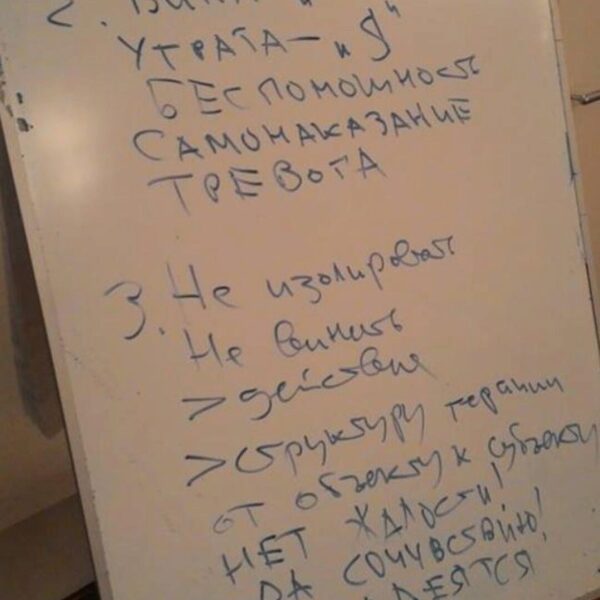 2. ВИНА
УТРАТА — "Я"
БЕСПОМОЩНОСТЬ
САМОНАКАЗАНИЕ
ТРЕВОГА
3. Не изолировать
Не винить
> действия
> структуру терапии
от объекту к субъекту
НЕТ ЖАЛОСТИ!
ДА СОЧУВСТВИЮ!